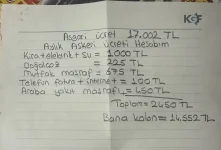 K F
Asgari ücret 17.002 TL
Aylık Asgari ücreti Hesabım
Kira+elektrik+su = 1.000 TL
Doğalgaz = 225 TL
Mutfak masrafı = 675 TL
Telefon fatura+internet = 100 TL
Araba yakıt masrafı = 450 TL
Toplam = 2450 TL
Bana kalan = 14.552 TL